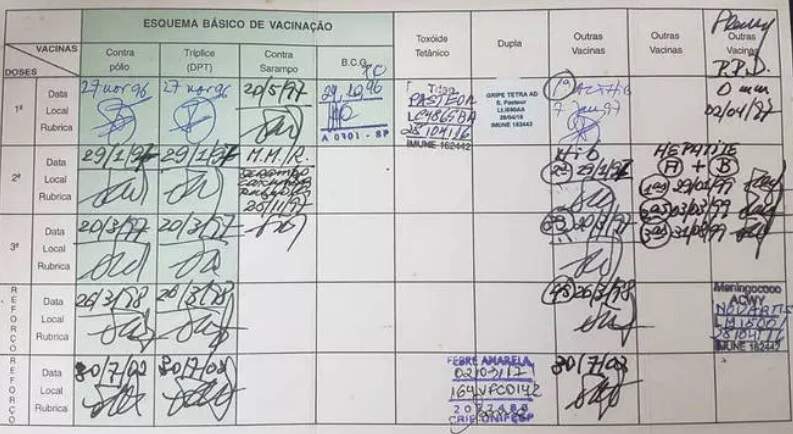 ESQUEMA BÁSICO DE VACINAÇÃO
VACINAS
DOSES
Contra pólio
Tríplice (DPT)
Contra Sarampo
B.C.G.
Toxóide Tetânico
Dupla
Outras Vacinas
Outras Vacinas
Outras Vacinas
P.P.D.
1ª
Data
Local
Rubrica
27 nov 96
27 nov 96
20/5/97
29.10.96
A 0701 - SP
PASTEUR
28/04/16
IMUNE 162442
GRIPE TETRA AD
S. Pasteur
28/04/16
IMUNE 162442
1ª ACTHIB
7 Jan 97
0 mm
02/04/97
2ª
Data
Local
Rubrica
29/1/97
29/1/97
M.M.R.
SARAMPO
CAXUMBA
RUBÉOLA
26/11/97
HiB
2ª 29/1/97
HEPATITE
A + B
1ª 29/01/99
2ª 03/03/99
3ª 31/08/99
3ª
Data
Local
Rubrica
20/3/97
20/3/97
3ª 20/3/97
REFORÇO
Data
Local
Rubrica
26/3/98
26/3/98
4ª 26/3/98
Meningococo
ACWY
NOVARTIS
28/04/16
IMUNE 162442
REFORÇO
Data
Local
Rubrica
30/7/02
30/7/02
FEBRE AMARELA
02/03/17
164VFC014Z
CRIE UNIFESP
30/7/02